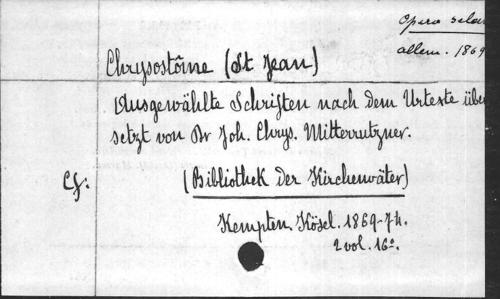 Opera selec
allem. 1869
Chrysostôme (St Jean)
Ausgewählte Schriften nach dem Urtexte über
setzt von Dr Joh. Chrys. Mitterrutzner.
Cf.
(Bibliothek der Kirchenväter)
Kempten. Kösel. 1869-74.
2 vol. 16°.